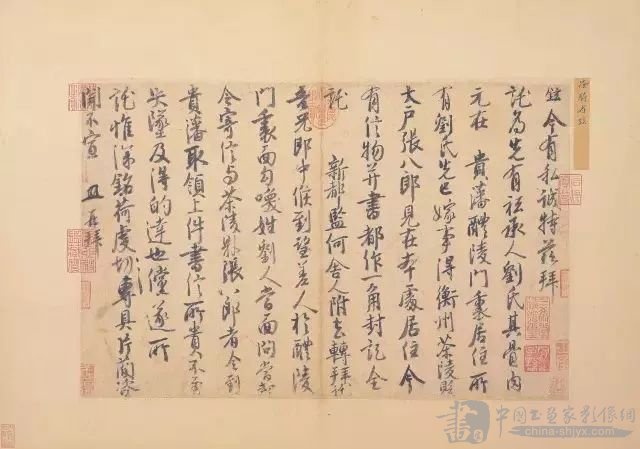 鉉今有私誠特茲拜
託為先有祗承人劉氏其骨肉
元在 貴藩醴陵門裏居住所
有劉氏先已嫁事得衡州茶陵縣
大户張八郎見在本處居住今
有信物并書都作一角封記全
託
新都監何舍人附去轉拜託
吾兄郎中候到望差人於醴陵
門裏面勾喚姓劉人當面問當却
令寄信與茶陵縣張八郎者令到
貴藩取領上件書信所貴不至
失墜及得的達也儻遂所
託惟深銘荷虔切專具片簡咨
聞不宣 再拜
書
中國書畫家影像網
china-shjyx.com